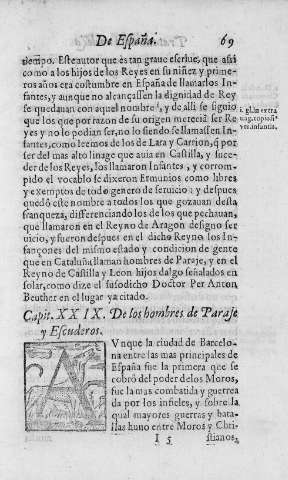 De España. 69
tiempo. Este autor que es tan graue escriue, que assi
como a los hijos de los Reyes en su niñez y prime-
ros años era costumbre en España de llamarlos In-
fantes, y aunque no alcançassen la dignidad de Rey
se quedauan con aquel nombre, y de alli se siguio
que los que por razon de su origen merecia ser Re-
yes y no lo podian ser, no lo siendo se llamassen In-
fantes, como leemos de los de Lara y Carrion, q̃ por
ser del mas alto linage que auia en Castilla, y suce-
der de los Reyes, los llamaron Infantes, y corrom-
pido el vocablo se dixeron Ermunios como libres
y exemptos de todo genero de seruicio: y despues
quedò este nombre a todos los que gozauan desta
franqueza, differenciando los de los que pechauan,
que llamaron en el Reyno de Aragon de signo ser
uicio, y fueron despues en el dicho Reyno los In-
fançones del mismo estado y condicion de gente
que en Cataluña llaman hombres de Paraje, y en el
Reyno de Castilla y Leon hijos dalgo señalados en
solar, como dize el susodicho Doctor Per Anton
Beuther en el lugar ya citado.
Capit. XXIX. De los hombres de Paraje
y Escuderos.
AVnque la ciudad de Barcelo-
na entre las mas principales de
España fue la primera que se
cobrò del poder de los Moros,
fue la mas combatida y guerrea
da por los infieles, y sobre la
qual mayores guerras y bata-
llas huuo entre Moros y Chri-
I 5 stianos,